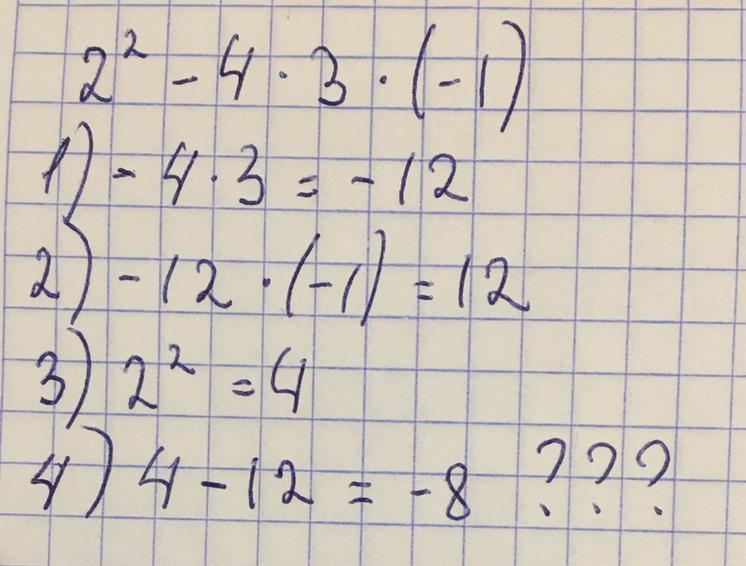 2² - 4 · 3 · (-1)
1) - 4 · 3 = - 12
2) - 12 · (-1) = 12
3) 2² = 4
4) 4 - 12 = - 8 ???